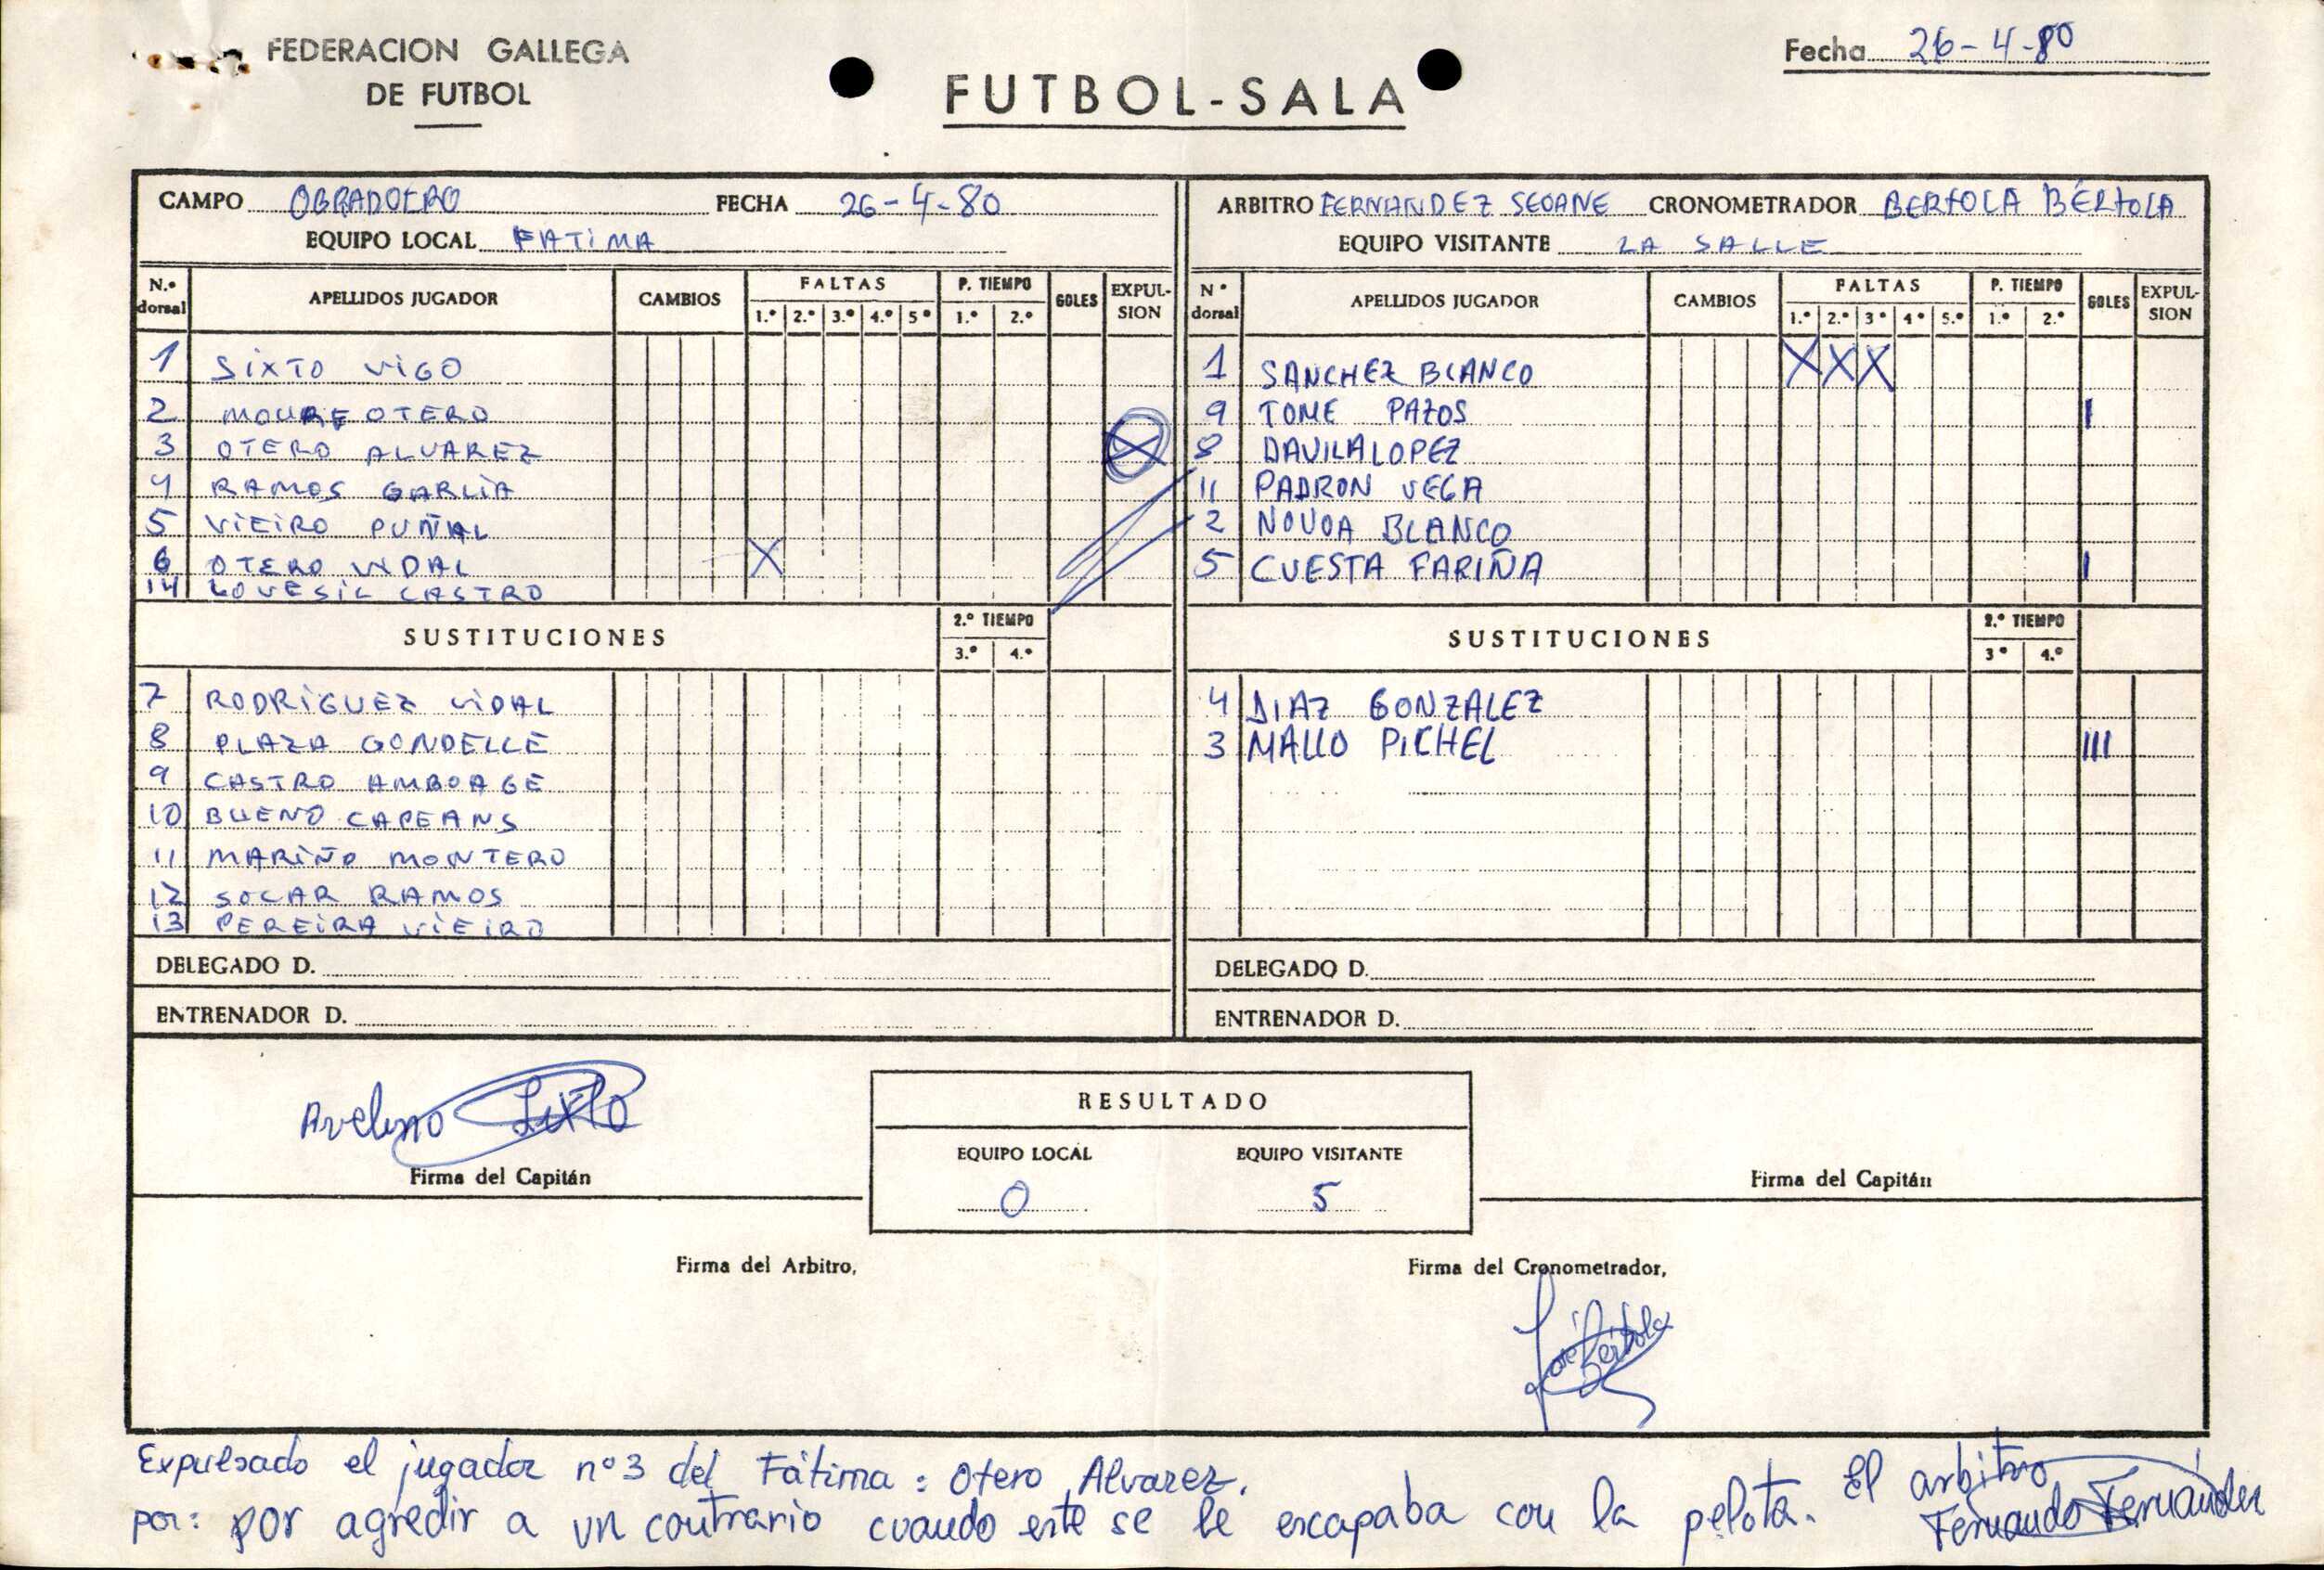 FEDERACION GALLEGA
DE FUTBOL
FUTBOL-SALA
Fecha 26-4-80
CAMPO OBRADOIRO FECHA 26-4-80
EQUIPO LOCAL FATIMA
N.º dorsal APELLIDOS JUGADOR CAMBIOS FALTAS 1.º 2.º 3.º 4.º 5º P. TIEMPO 1.º 2.º GOLES EXPULSION
1 SIXTO VIGO
2 MOURE OTERO
3 OTERO ALVAREZ X
4 RAMOS GARCIA
5 VIEIRO PUÑAL
6 OTERO VIDAL X
14 LOVESIL CASTRO
SUSTITUCIONES 2.º TIEMPO 3.º 4.º
7 RODRIGUEZ VIDAL
8 PLAZA GONDELLE
9 CASTRO AMBOAGE
10 BUENO CAPEANS
11 MARIÑO MONTERO
12 SOCAR RAMOS
13 PEREIRA VIEIRO
DELEGADO D.
ENTRENADOR D.
ARBITRO FERNANDEZ SEOANE CRONOMETRADOR BERTOLA BÉRTOLA
EQUIPO VISITANTE LA SALLE
Nº dorsal APELLIDOS JUGADOR CAMBIOS FALTAS 1.º 2.º 3º 4º 5.º P. TIEMPO 1.º 2.º GOLES EXPULSION
1 SANCHEZ BLANCO X X X
9 TOME PAZOS I
8 DAVILA LOPEZ
11 PADRON VEGA
2 NOVOA BLANCO
5 CUESTA FARIÑA I
SUSTITUCIONES 2.º TIEMPO 3º 4.º
4 DIAZ GONZALEZ
3 MALLO PICHEL III
DELEGADO D.
ENTRENADOR D.
Avelino Sixto
Firma del Capitán
RESULTADO
EQUIPO LOCAL EQUIPO VISITANTE
0 5
Firma del Capitán
Firma del Arbitro,
Firma del Cronometrador,
José Bértola
Expulsado el jugador nº 3 del Fátima: Otero Alvarez.
por: por agredir a un contrario cuando este se le escapaba con la pelota. El arbitro
Fernando Fernández